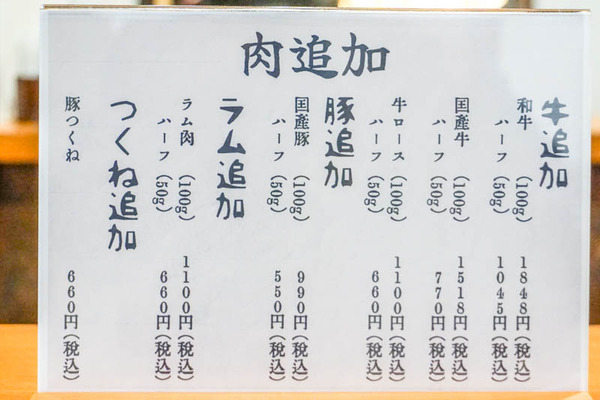 肉追加
牛追加
和牛（100g）1848円（税込）
ハーフ（50g）1045円（税込）
国産牛（100g）1518円（税込）
ハーフ（50g）770円（税込）
牛ロース（100g）1100円（税込）
ハーフ（50g）660円（税込）
豚追加
国産豚（100g）990円（税込）
ハーフ（50g）550円（税込）
ラム追加
ラム肉（100g）1100円（税込）
ハーフ（50g）660円（税込）
つくね追加
豚つくね 660円（税込）